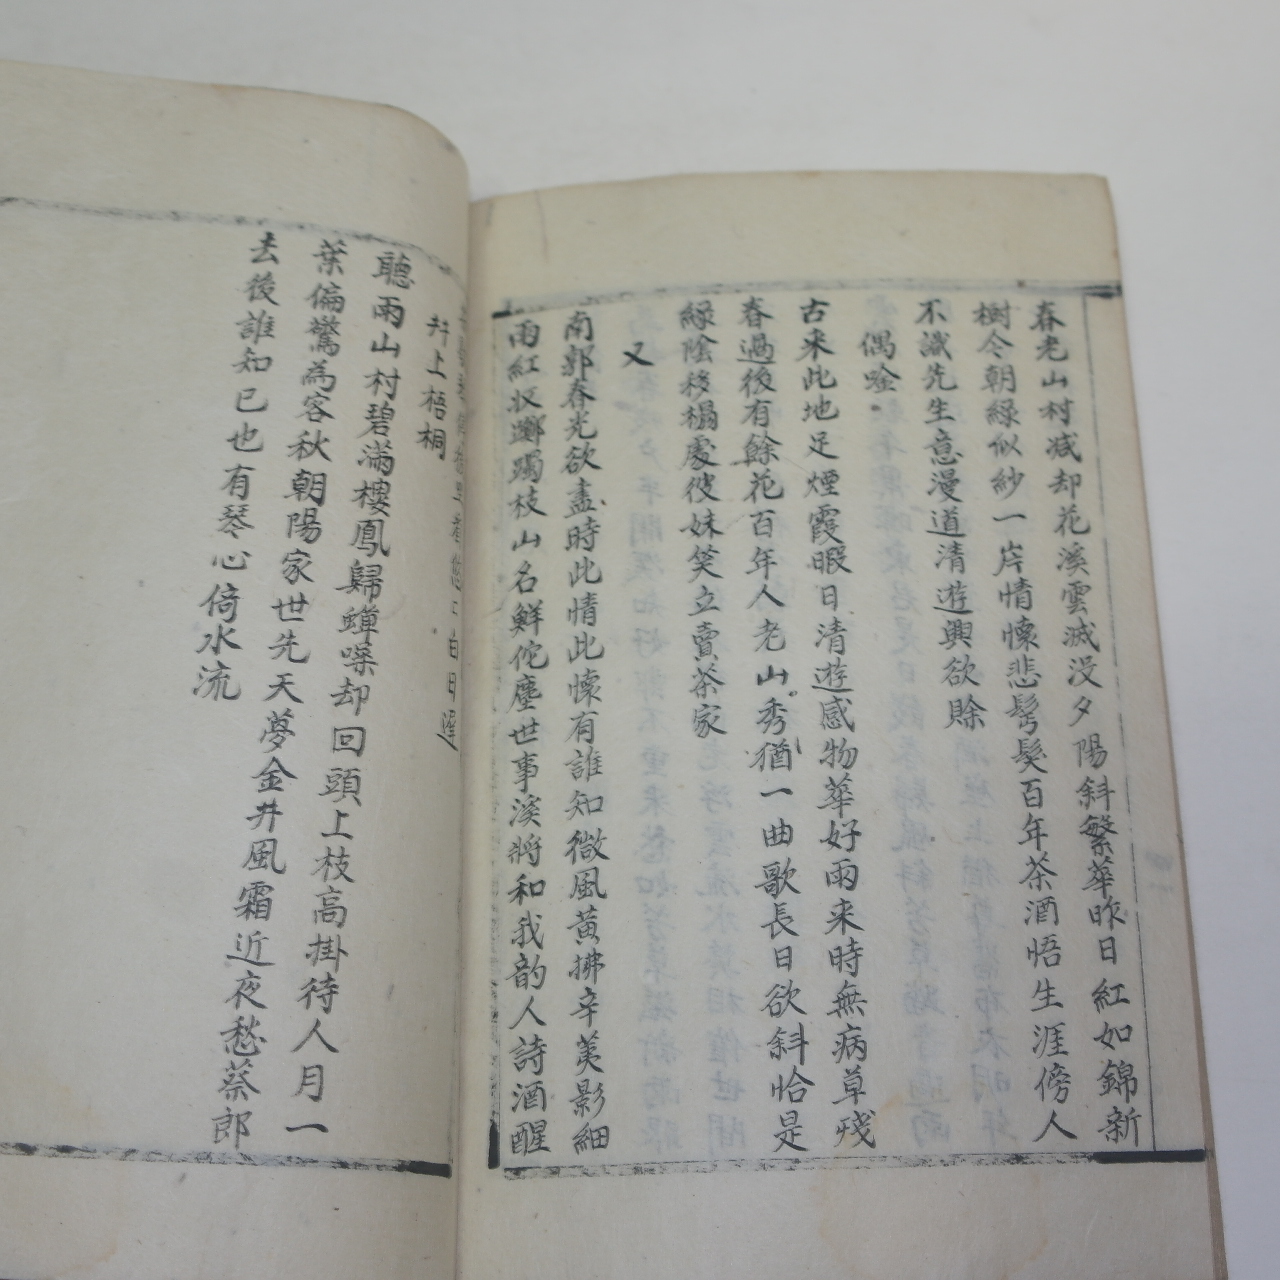 春老山村减却花溪雲滅没夕陽斜繁華昨日紅如錦新
樹今朝綠似紗一岸情懷悲髩髮百年茶酒悟生涯傍人
不識先生意漫道清遊興欲賖
偶唫
古来此地足煙霞暇日清遊感物華好雨来時無病草殘
春過後有餘花百年人老山秀猶一曲歌長日欲斜恰是
綠陰移榻處彼妹笑立賣茶家
又
南郭春光欲盡時此情此懷有誰知微風黃拂辛荑影細
雨紅板躑躅枝山名鮮佗塵世事溪將和我韵人詩酒醒
白日遲
井上梧桐
聽雨山村碧滿樓鳳歸蟬噪却回頭上枝高掛待人月一
葉偏驚為客秋朝陽家世先天夢金井風霜近夜愁蔡郎
去後誰知已也有琴心倚水流